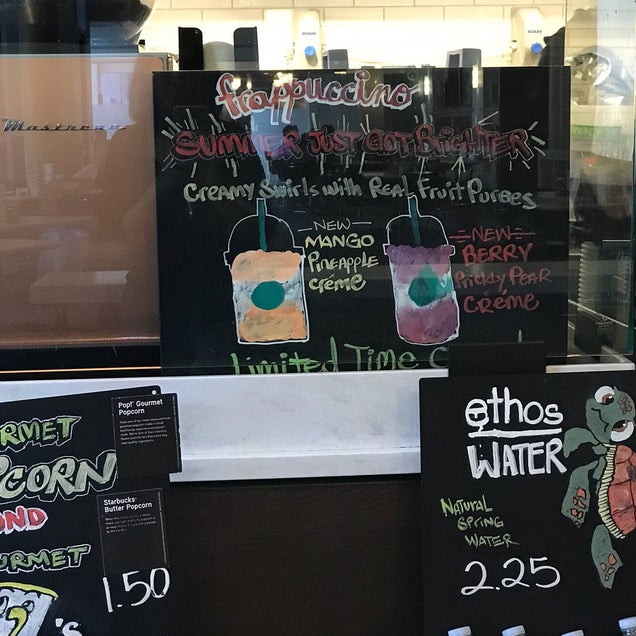 Mastrena
frappuccino
SUMMER JUST GOT BRIGHTER
Creamy Swirls with Real Fruit Purees
NEW
MANGO
PiNEAPPLE
Créme
NEW
BERRY
Prickly PEAR
CRÈME
Limited Time
RMET
CORN
OND
URMET
's
Pop! Gourmet
Popcorn
Starbucks
Butter Popcorn
1.50
ethos
WATER
NATURAL
SPRING
WATER
2.25